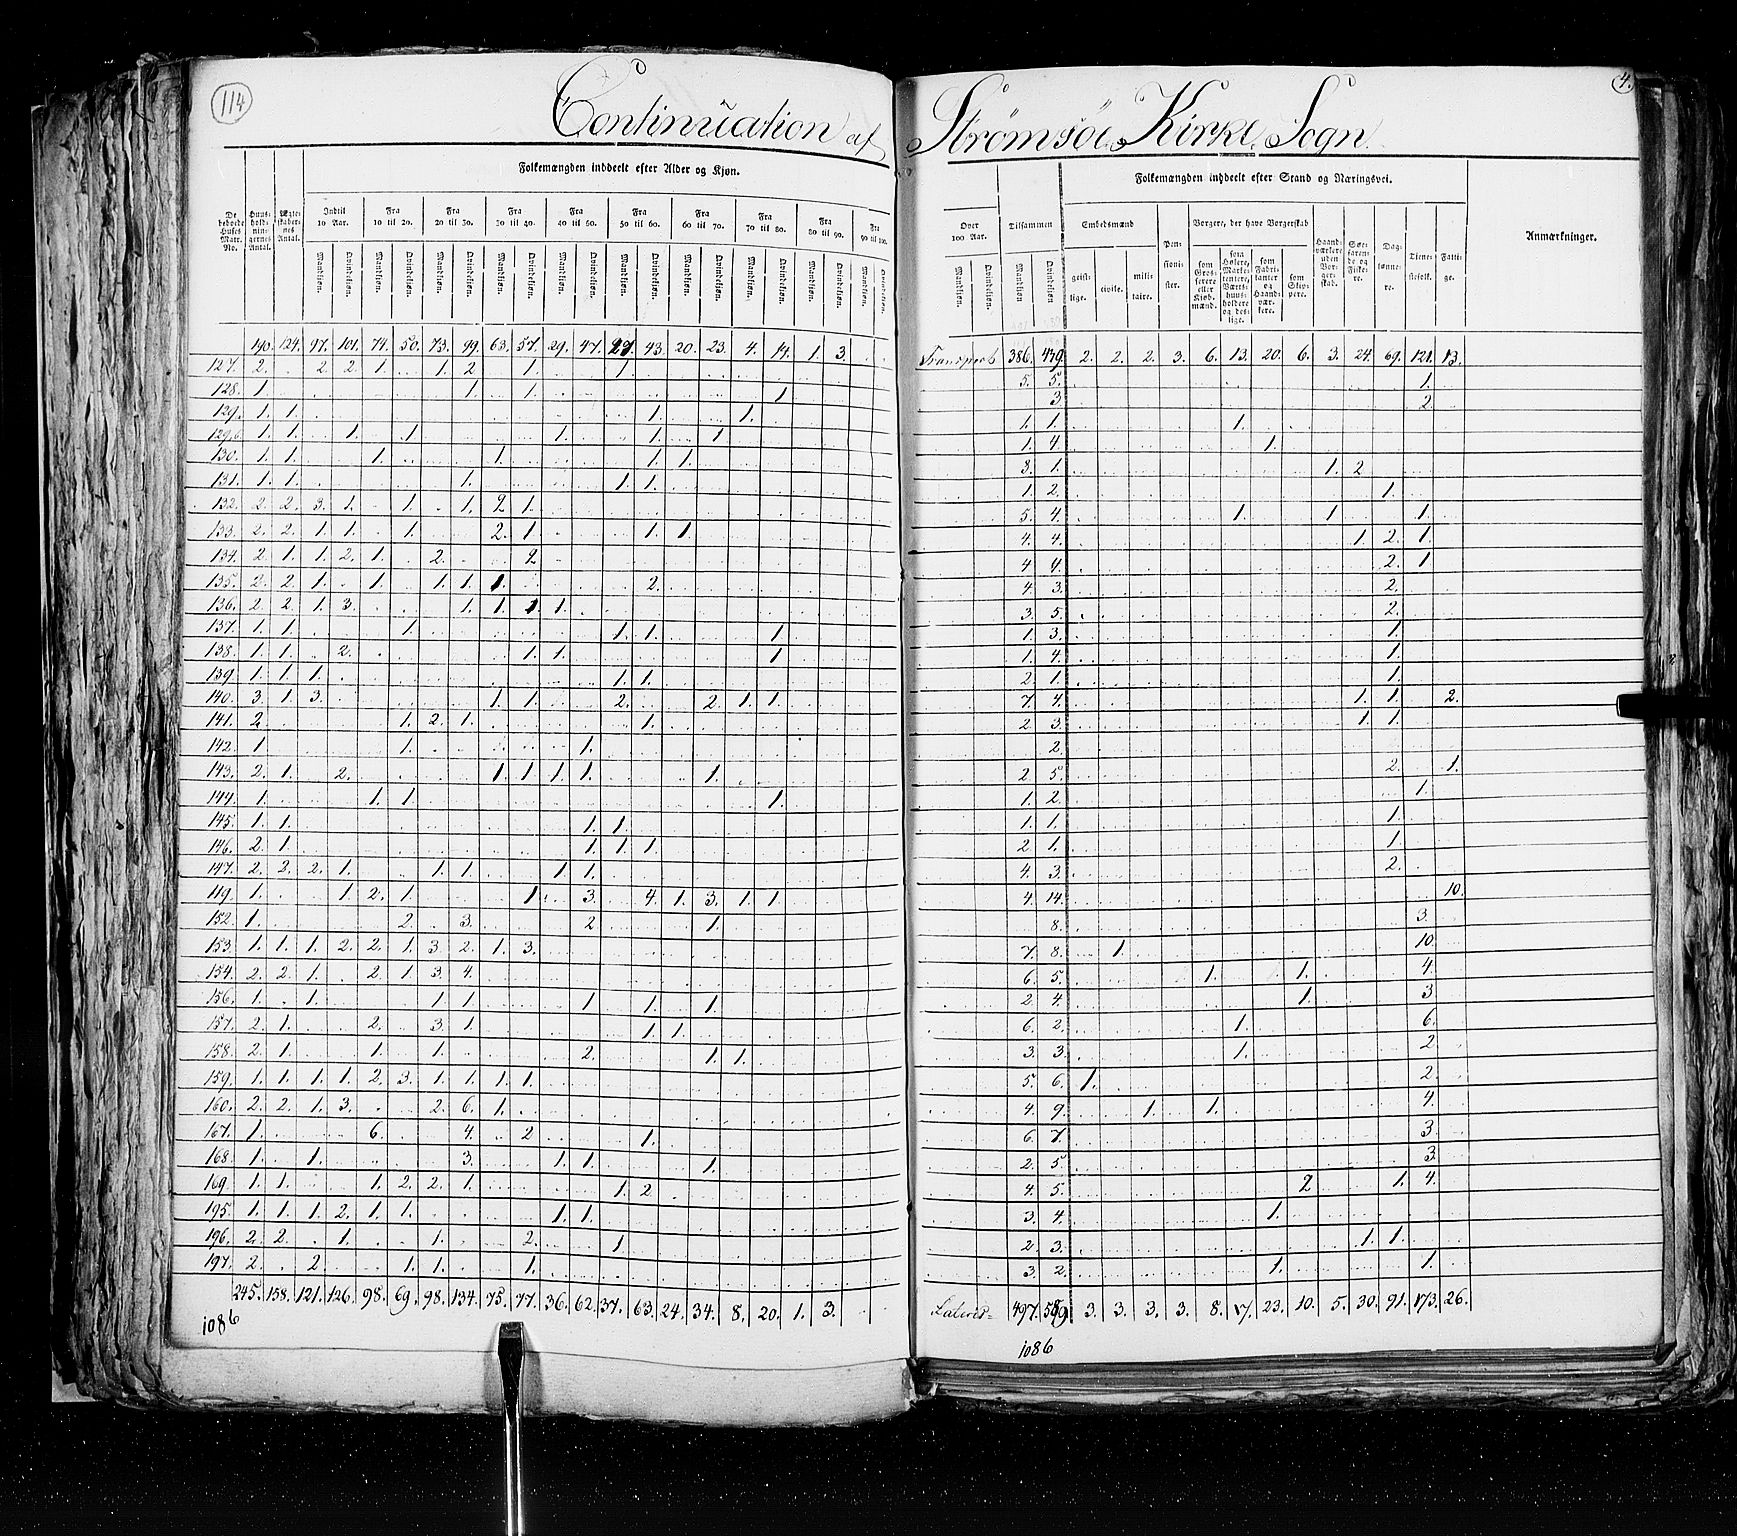 114
Continuation af Strømsöe Kirke Sogn
4.
Folkemængden inddeelt efter Alder og Kjøn.
Folkemængden inddeelt efter Stand og Næringsvei.
De beboede Huses Matr. No.
Huusholdningernes Antal.
Ægteskabernes Antal.
Indtil 10 Aar.
Fra 10 til 20.
Fra 20 til 30.
Fra 30 til 40.
Fra 40 til 50.
Fra 50 til 60.
Fra 60 til 70.
Fra 70 til 80.
Fra 80 til 90.
Fra 90 til 100.
Over 100 Aar.
Tilsammen
Mandkjøn. Qvindekjøn.
Embedsmænd
geistlige. civile. militaire.
Pensionister.
Borgere, der have Borgerskab
som Grosserere eller Kjøbmænd.
som Høkere, Marketentere, Værtshuusholdere og deslige.
som Fabrikanter og Haandværkere.
som Skippere.
Haandværkere uden Borgerskab.
Søefarende og Fiskere.
Daglønnere.
Tienestefolk.
Fattige.
Anmærkninger.
190. 124. 97. 101. 74. 50. 73. 99. 63. 57. 29. 47. 29. 43. 20. 23. 4. 14. 1. 3. Transport 386. 439. 2. 2. 2. 3. 6. 13. 20. 6. 3. 24. 69. 121. 13.
127. 2. 2 2. 1. 1. 2 1. 1. 5. 5. 1.
128. 1. 1. 1. 1 3 2.
129. 1. 1. 1. 1. 1. 1. 1.
129.b 1. 1. 1. 1. 1. 1. 1 1. 4. 1.
130. 1. 1. 1. 1. 1. 1. 3. 1. 1. 2
131. 1. 1. 1. 1. 1. 1. 2. 1.
132. 2. 2. 3. 1. 1. 1. 2 1. 5. 4. 1. 1. 1.
133. 2. 2. 1. 1. 1. 2. 1. 1. 1. 4. 4. 1. 2. 1.
134. 2. 1. 1. 2. 1. 2. 2 4 4. 2. 1
135. 2. 2. 1. 1. 1. 1. 1. 2. 4. 3. 2.
136. 2. 2. 1. 3. 1. 1. 1. 1. 3. 5. 2.
137. 1. 1. 1. 1. 1. 1 1. 3. 1.
138. 1. 1. 2. 1. 1. 1 1. 4. 1.
139. 1. 1. 1. 1. 1. 2 1. 1.
140. 3 1. 3. 1. 1. 2. 2. 1. 1. 7. 4. 1. 1. 2.
141. 2. 1. 2. 1. 1. 2. 3. 1. 1.
142. 1 1. 1. 2.
143. 2. 1. 2. 1. 1. 1. 1. 1. 2 5. 2. 1.
144. 1. 1. 1. 1. 1. 2. 1.
145. 1. 1. 1. 1. 1. 1. 1.
146. 2. 1. 1. 1. 1. 2. 1. 1.
147. 2. 2. 2. 1. 1. 1. 1. 1. 4. 3. 2.
149. 1. 1. 2. 1. 1. 3. 4. 1. 3. 1. 1. 4. 14. 10.
152. 1. 2. 3. 2 1. 8. 3.
153. 1. 1. 1. 2. 2. 1. 3. 2. 1. 3. 7. 8. 1. 10.
154. 2. 2. 1. 2. 1. 3. 4. 6. 5. 1. 1. 4.
156. 1. 1. 1. 1. 1. 1. 1. 2. 4. 1. 3
157. 2. 1. 2. 3. 1. 1. 1. 6. 2. 1. 6.
158. 2. 1. 1. 1. 2. 1. 1. 3. 3. 1. 2
159. 1. 1. 1. 1. 2. 3. 1. 1. 1. 1. 5. 6. 1. 2.
160. 2. 2. 1. 3. 2. 6. 1. 4. 9. 1. 1. 4.
167. 1. 6. 4. 2 1. 6. 7. 3.
168. 1. 1. 3. 1. 1. 1. 2. 5. 3.
169. 1. 1. 1. 2. 2. 1. 1. 2 4. 5. 2 1. 4.
195. 1. 1. 1. 2. 1. 1. 1. 1. 3. 4. 1.
196. 2. 2. 1. 1. 2. 1. 2. 3. 1. 1.
197. 2. 2. 1. 1. 1. 3. 2. 1. 1.
245. 158. 121. 126. 98. 69. 98. 134. 75. 77. 36. 62. 37. 63. 24. 34. 8. 20. 1. 3. Lateris 497. 589. 3. 3. 3. 3. 8. 17. 23. 10. 5. 30. 91. 173. 26.
1086
1086